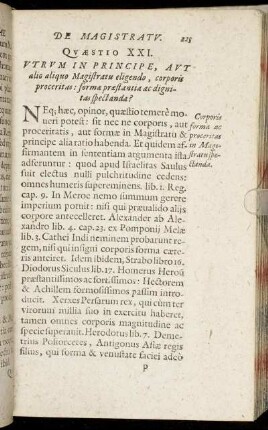 DE MAGISTRATV. 225
QVÆSTIO XXI.
VTRVM IN PRINCIPE, AVT
alio aliquo Magistratu eligendo, corporis
proceritas: forma præstantia ac digni-
tas spectanda?
NEq; hæc, opinor, quæstio temerè mo-
ueri potest: sit nec ne corporis, aut
proceritatis, aut formæ in Magistratu &
principe alia ratio habenda. Et quidem af-
firmantem in sententiam argumenta ista
afferuntur: quod apud Israelitas Saulus
fuit electus nulli pulchitudine cedens:
omnes humeris supereminens. lib. 1. Reg.
cap. 9. In Meroe nemo summum gerere
imperium potuit: nisi qui præualido aliis
corpore antecelleret. Alexander ab Ale-
xandro lib. 4. cap. 23. ex Pomponij Melæ
lib. 3. Cathei Indi neminem probarunt re-
gem, nisi qui insigni corporis forma cæte-
ris anteiret. Idem ibidem, Strabo libro 16,
Diodorus Siculus lib. 17. Homerus Heroas
præstantissimos ac fortissimos: Hectorem
& Achillem formosissimos passim intro-
ducit. Xerxes Persarum rex, qui cùm ter
virorum millia suo in exercitu haberet,
tamen omnes corporis magnitudine ac
specie superauit. Herodotus lib. 7. Deme-
trius Poliorcetes, Antigonus Asiæ regis
filius, qui forma & venustate faciei adeò
p
Corporis
forma ac
proceritas
in Magi-
stratu spe-
ctanda.